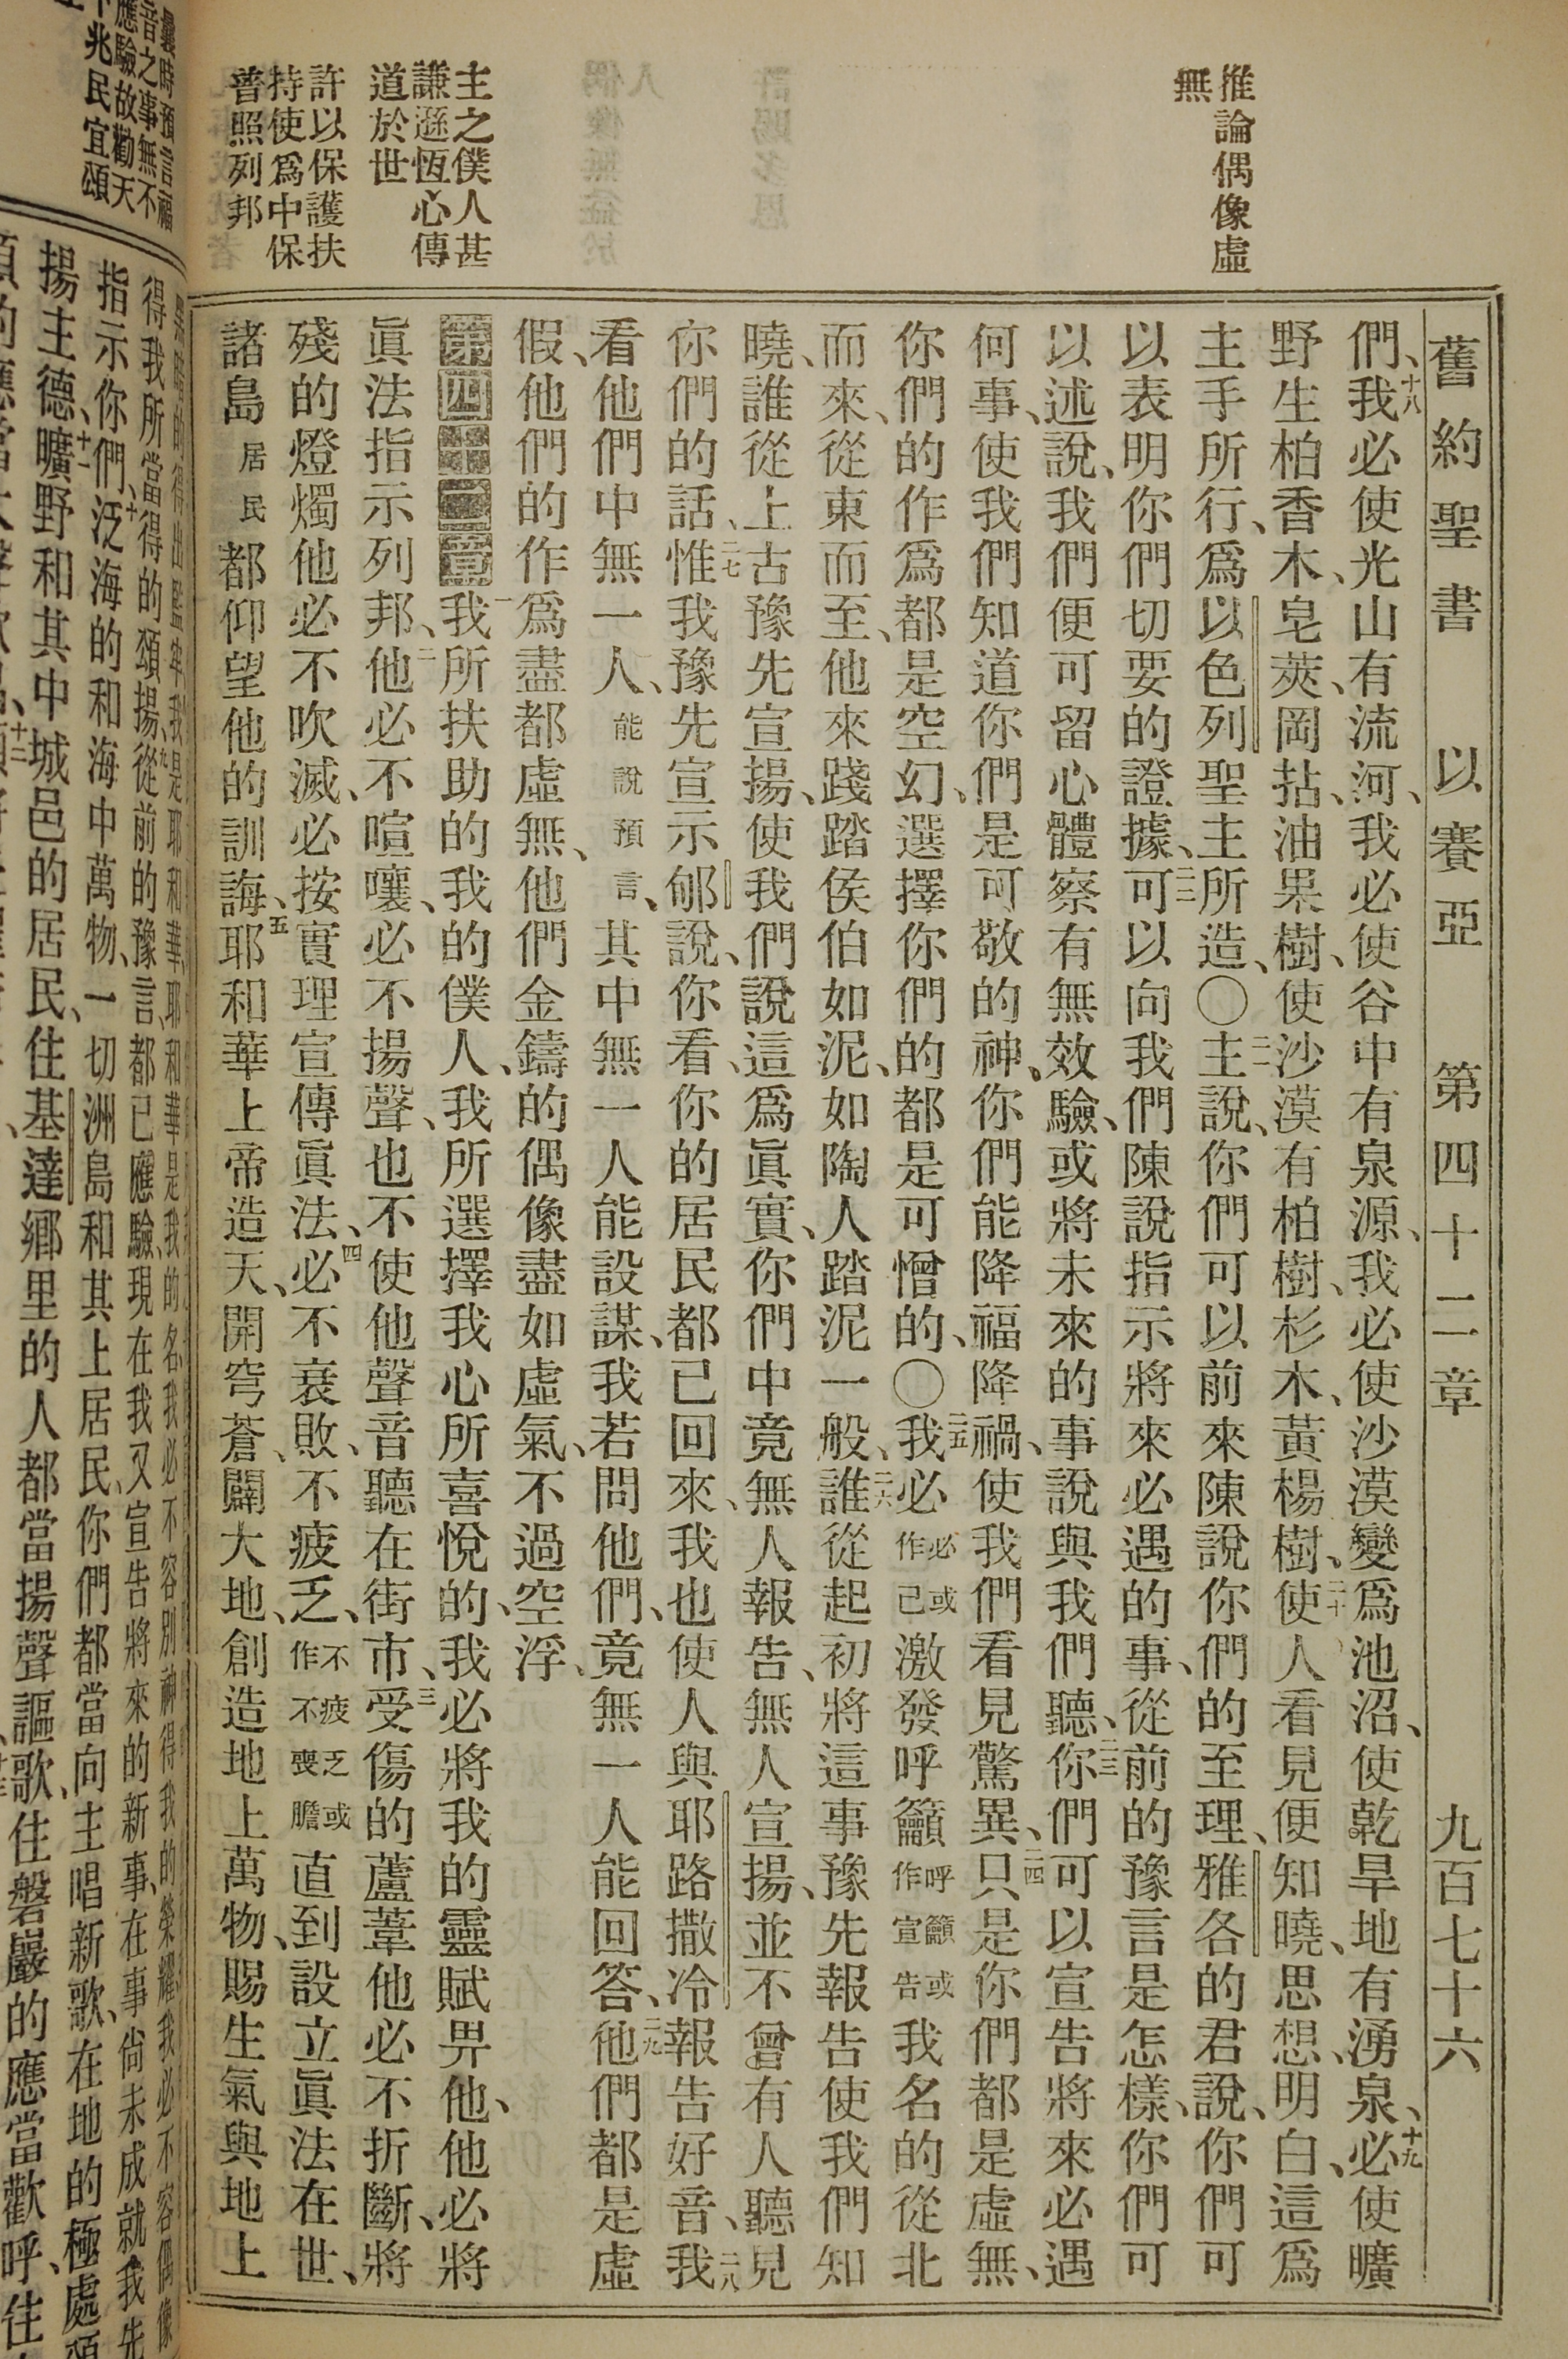 舊約聖書 以賽亞 第四十二章 九百七十六
推論偶像虛
無
主之僕人甚
謙遜恆心傳
道於世
許以保護扶
持使爲中保
普照列邦
們、十八我必使光山有流河、我必使谷中有泉源、我必使沙漠變爲池沼、使乾旱地有湧泉、十九必使曠
野生柏香木、皂莢、岡拈、油果樹、使沙漠有柏樹、杉木、黃楊樹、二十使人看見便知曉、思想、明白、這爲
主手所行、爲以色列聖主所造、○二一主說、你們可以前來陳說你們的至理、雅各的君說、你們可
以表明你們切要的證據、二二可以向我們陳說指示將來必遇的事、從前的豫言是怎樣、你們可
以述說、我們便可留心體察有無效驗、或將未來的事說與我們聽、二三你們可以宣告將來必遇
何事、使我們知道你們是可敬的神、你們能降福降禍、使我們看見驚異、二四只是你們都是虛無、
你們的作爲都是空幻、選擇你們的都是可憎的、○二五我必必或作己激發呼籲呼籲或作宣告我名的從北
而來、從東而至、他來踐踏侯伯如泥、如陶人踏泥一般、二六誰從起初將這事豫先報告使我們知
曉、誰從上古豫先宣揚、使我們說這爲眞實、你們中竟無人報告、無人宣揚、並不曾有人聽見
你們的話、二七惟我豫先宣示郇說、你看、你的居民都已回來、我也使人與耶路撒冷報告好音、二八我
看他們中無一人、能說預言、其中無一人能設謀、我若問他們、竟無一人能回答、二九他們都是虛
假、他們的作爲盡都虛無、他們金鑄的偶像盡如虛氣、不過空浮、
第四十二章一我所扶助的我的僕人、我所選擇我心所喜悅的、我必將我的靈賦畀他、他必將
眞法指示列邦、二他必不喧嚷、必不揚聲、也不使他聲音聽在街市、三受傷的蘆葦他必不折斷、將
殘的燈燭他必不吹滅、必按實理宣傳眞法、四必不衰敗、不疲乏、不疲乏或作不喪膽直到設立眞法在世、
諸島居民都仰望他的訓誨、五耶和華上帝造天、開穹蒼、闢大地、創造地上萬物、賜生氣與地上
曩時預言福
音之事無不
應驗故勸天
下兆民宜頌
得我所當得的頌揚、九從前的豫言、都已應驗、現在我又宣告將來的新事、在事尙未成就我先
指示你們、十泛海的和海中萬物、一切洲島和其上居民、你們都當向主唱新歌、在地的極處頌
揚主德、十一曠野和其中城邑的居民、住基達鄉里的人都當揚聲謳歌、住磐巖的應當歡呼、